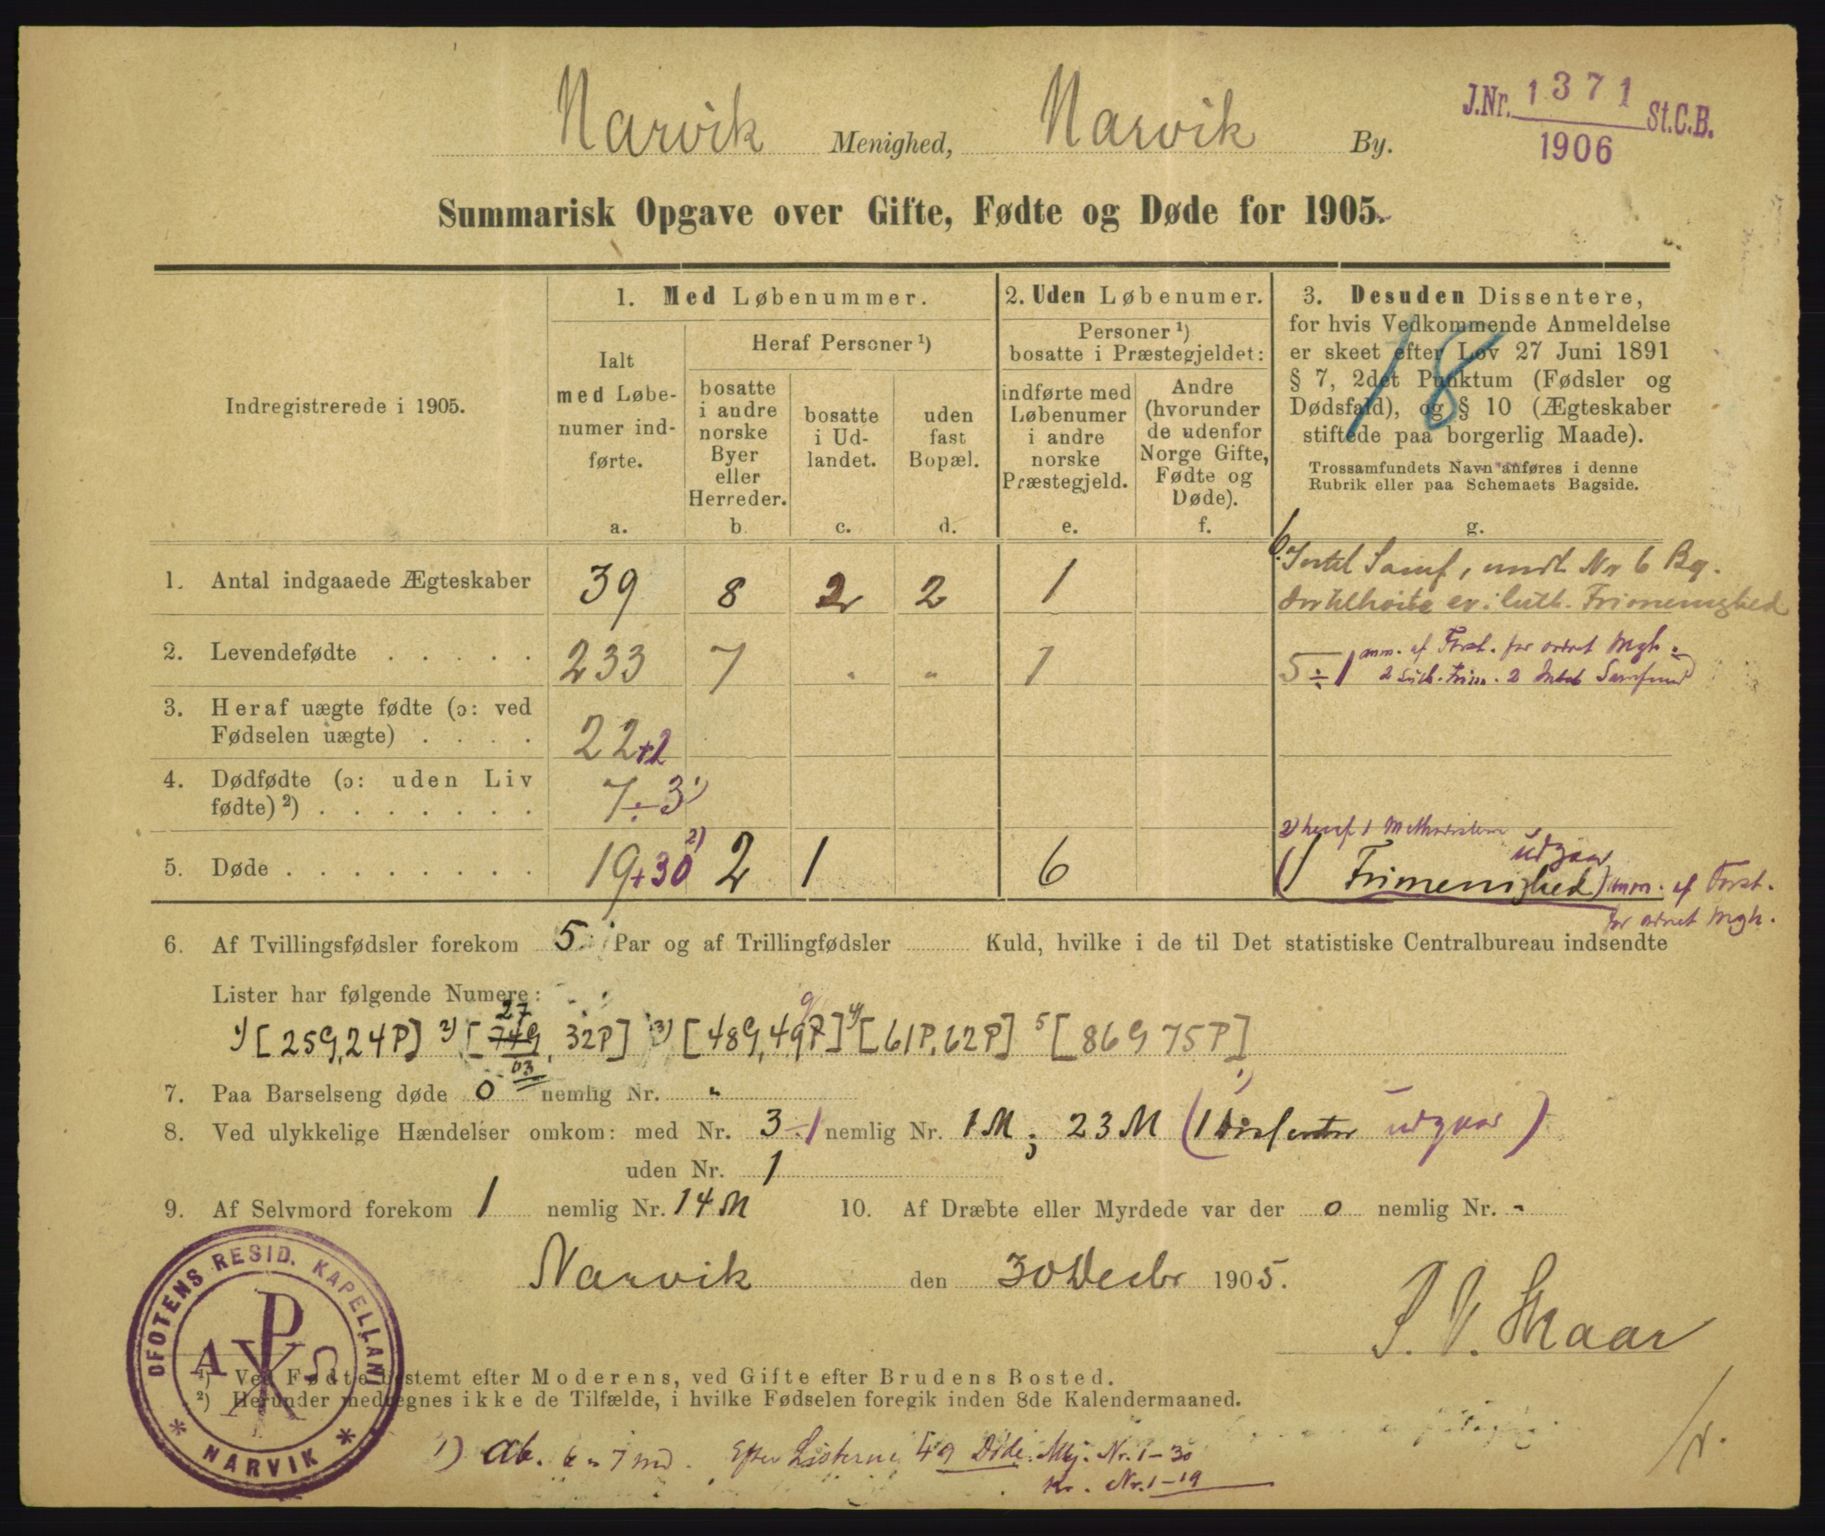 Narvik Menighed, Narvik By.
J.Nr. 1371 St.C.B.
1906
Summarisk Opgave over Gifte, Fødte og Døde for 1905.
Indregistrerede i 1905.
1. Med Løbenummer.
Ialt med Løbe-
numer ind-
førte.
a.
Heraf Personer ¹)
bosatte
i andre
norske
Byer
eller
Herreder.
b.
bosatte
i Ud-
landet.
c.
uden
fast
Bopæl.
d.
2. Uden Løbenumer.
Personer ¹)
bosatte i Præstegjeldet:
indførte med
Løbenumer
i andre
norske
Præstegjeld.
e.
Andre
(hvorunder
de udenfor
Norge Gifte,
Fødte og
Døde).
f.
3. Desuden Dissentere,
for hvis Vedkommende Anmeldelse
er skeet efter Lov 27 Juni 1891
§ 7, 2det Punktum (Fødsler og
Dødsfald), og § 10 (Ægteskaber
stiftede paa borgerlig Maade).
18
Trossamfundets Navn anføres i denne
Rubrik eller paa Schemaets Bagside.
g.
1. Antal indgaaede Ægteskaber 39 8 2 2 1 6. Samf, undt Nr 6 Bg.
er i luth. Frimenighed
2. Levendefødte . . . . . 233 7 " " 1 5 ÷ 1 anm. af Forst. for ordret Mgh.
2 Luth. Frim. 2 Samfund
3. Heraf uægte fødte (ɔ: ved
Fødselen uægte) . . . . 22+2
4. Dødfødte (ɔ: uden Liv
fødte) ²) . . . . . . . 7÷3 ¹)
2) heraf 1 Methodist
5. Døde . . . . . . . . 19+30 ²) 2 1 6 (1 Frimenighed) udgaar anm. af Forst.
for ordret Mgh.
6. Af Tvillingsfødsler forekom 5 Par og af Trillingfødsler Kuld, hvilke i de til Det statistiske Centralbureau indsendte
Lister har følgende Numere:
27
1) [25G, 24P] 2) [74G, 32P] 3) [48G, 49P] 4) [61P, 62P] 5 [86G 75P]
03
7. Paa Barselseng døde 0 nemlig Nr. "
8. Ved ulykkelige Hændelser omkom: med Nr. 3÷1 nemlig Nr. 1M; 23M (1 Dissenter udgaar)
uden Nr. 1
9. Af Selvmord forekom 1 nemlig Nr. 14M 10. Af Dræbte eller Myrdede var der 0 nemlig Nr. "
Narvik den 30 Decbr 1905.
S. V. Skaar
OFOTENS RESID. KAPELLANI
* NARVIK *
A Ω
¹) Ved Fødte bestemt efter Moderens, ved Gifte efter Brudens Bosted.
²) Herunder medregnes ikke de Tilfælde, i hvilke Fødselen foregik inden 8de Kalendermaaned.
1) ab. 6 - 7 md. Efter Listerne 49 Døde. Mkj. Nr. 1-30
Kv. Nr. 1-19